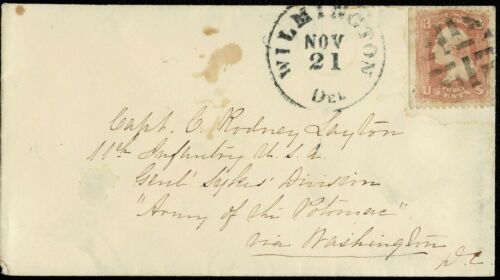 WILMINGTON
NOV
21
DEL
U CENTS S
Capt. C Rodney Layton
11th Infantry U.S.A.
Genl Sykes' Division
"Army of the Potomac"
via Washington
D.C